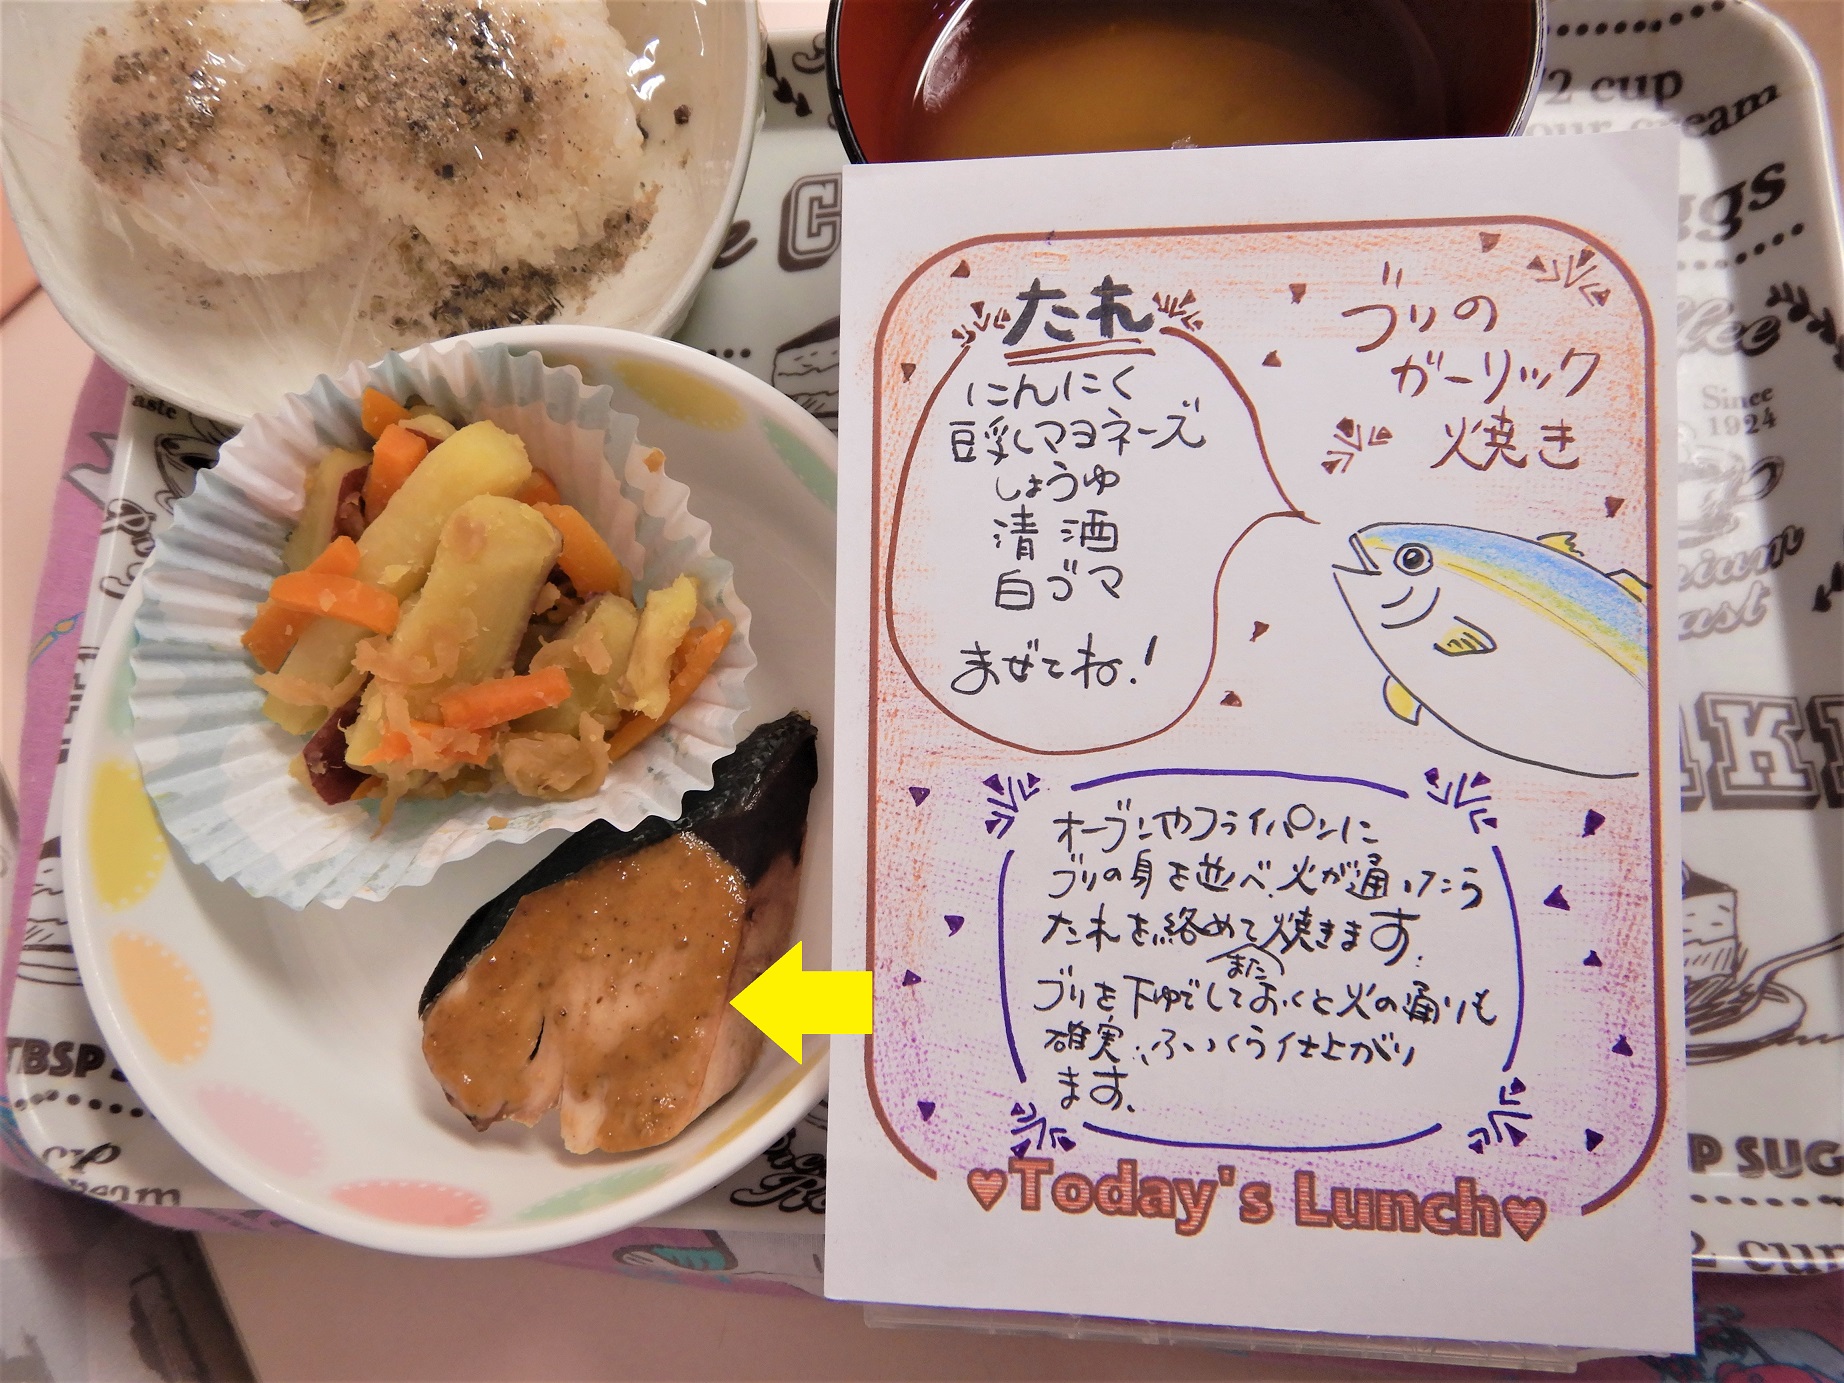 ブリの
ガーリック
焼き
たれ
にんにく
豆乳マヨネーズ
しょうゆ
清酒
白ゴマ
まぜてね!
オーブンやフライパンに
ブリの身を並べ、火が通ったら
たれを絡めて焼きます。
また
ブリを下ゆでしておくと火の通りも
確実、ふっくら仕上がり
ます。
♥Today's Lunch♥
/2 cup
our cream
ggs
Since
1924
aste
TBSP S
cup
ream
P SUG
2 cup